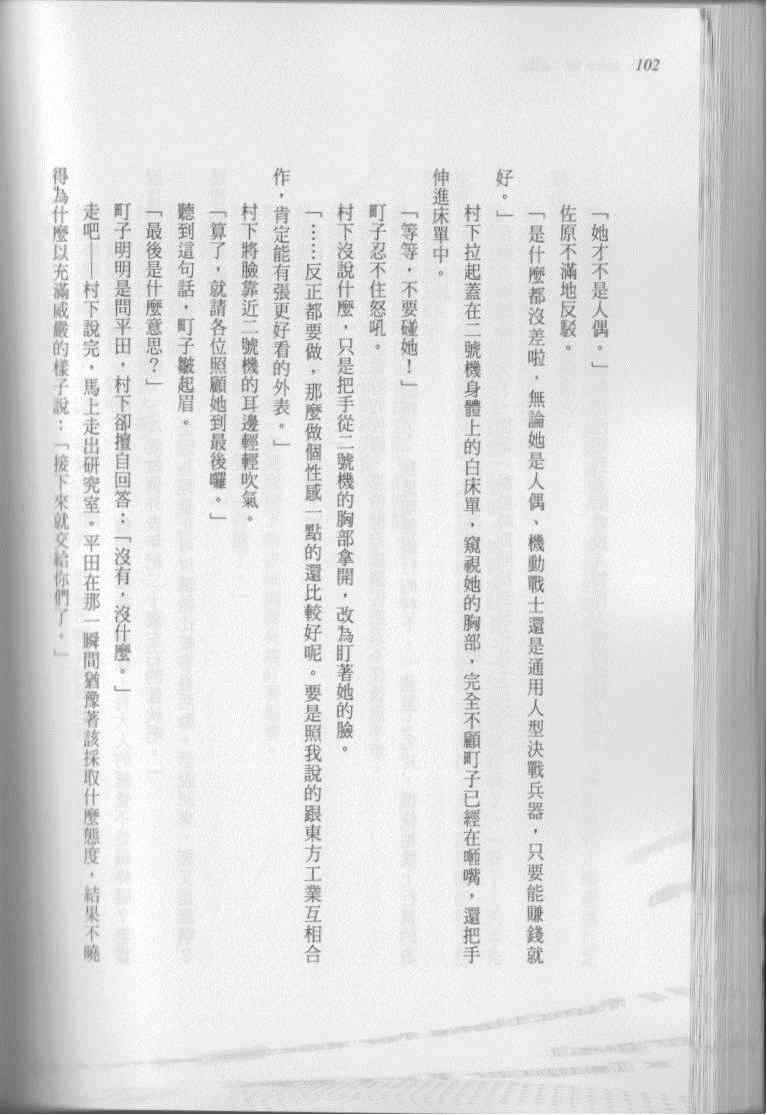 102
「她才不是人偶。」
佐原不滿地反駁。
「是什麼都沒差啦，無論她是人偶、機動戰士還是通用人型決戰兵器，只要能賺錢就
好。」
村下拉起蓋在二號機身體上的白床單，窺視她的胸部，完全不顧町子已經在咂嘴，還把手
伸進床單中。
「等等，不要碰她！」
町子忍不住怒吼。
村下沒說什麼，只是把手從二號機的胸部拿開，改為盯著她的臉。
「……反正都要做，那麼做個性感一點的還比較好呢。要是照我說的跟東方工業互相合
作，肯定能有張更好看的外表。」
村下將臉靠近二號機的耳邊輕輕吹氣。
「算了，就請各位照顧她到最後囉。」
聽到這句話，町子皺起眉。
「最後是什麼意思？」
町子明明是問平田，村下卻擅自回答：「沒有，沒什麼。」
走吧——村下說完，馬上走出研究室。平田在那一瞬間猶豫著該採取什麼態度，結果不曉
得為什麼以充滿威嚴的樣子說：「接下來就交給你們了。」